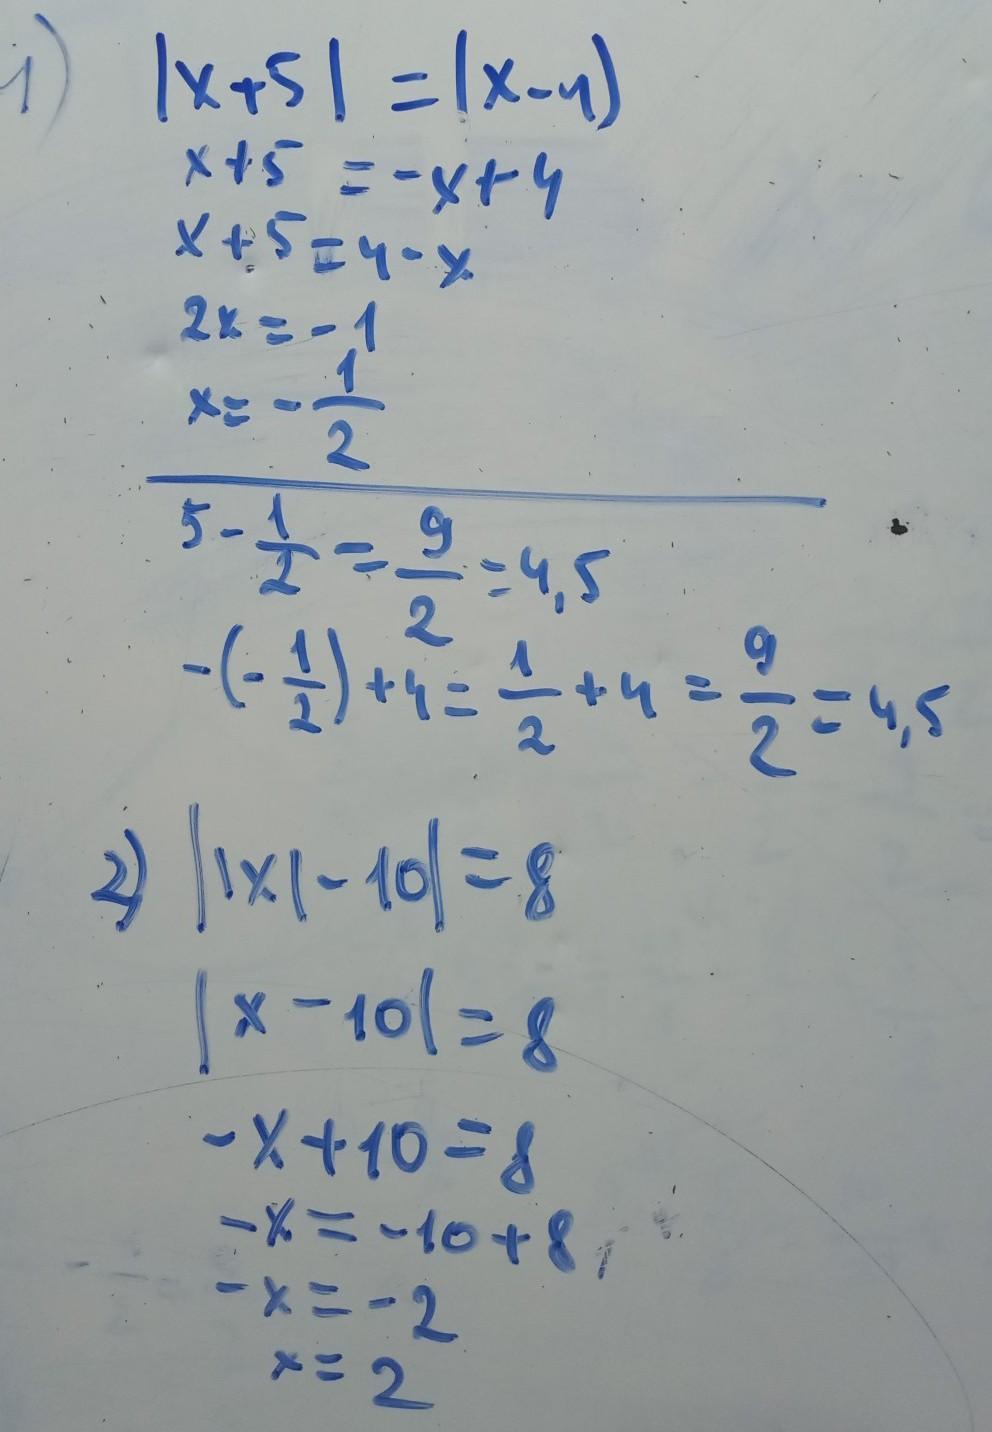 1) |x+5| = |x-4|
x+5 = -x+4
x+5=4-x
2x=-1
x=-1/2
5-1/2=9/2=4,5
-(-1/2)+4=1/2+4=9/2=4,5
2) ||x|-10|=8
|x-10|=8
-x+10=8
-x=-10+8
-x=-2
x=2